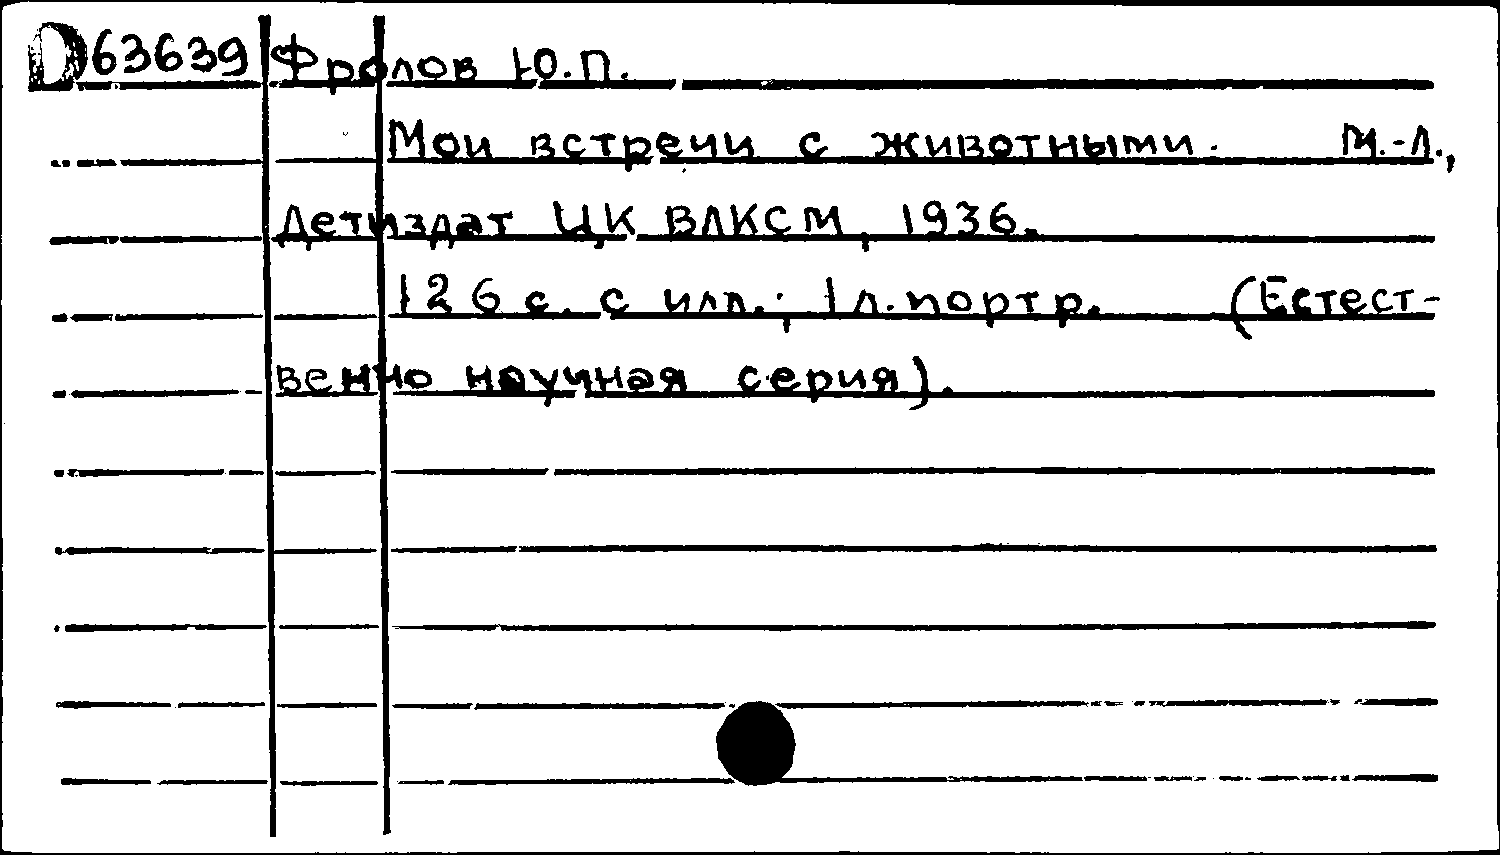 D63639 Фролов Ю.П.
Мои встречи с животными. М.-Л.,
Детиздат ЦК ВЛКСМ, 1936.
126 с. с илл.; 1 л. портр. (Естест-
венно научная серия).